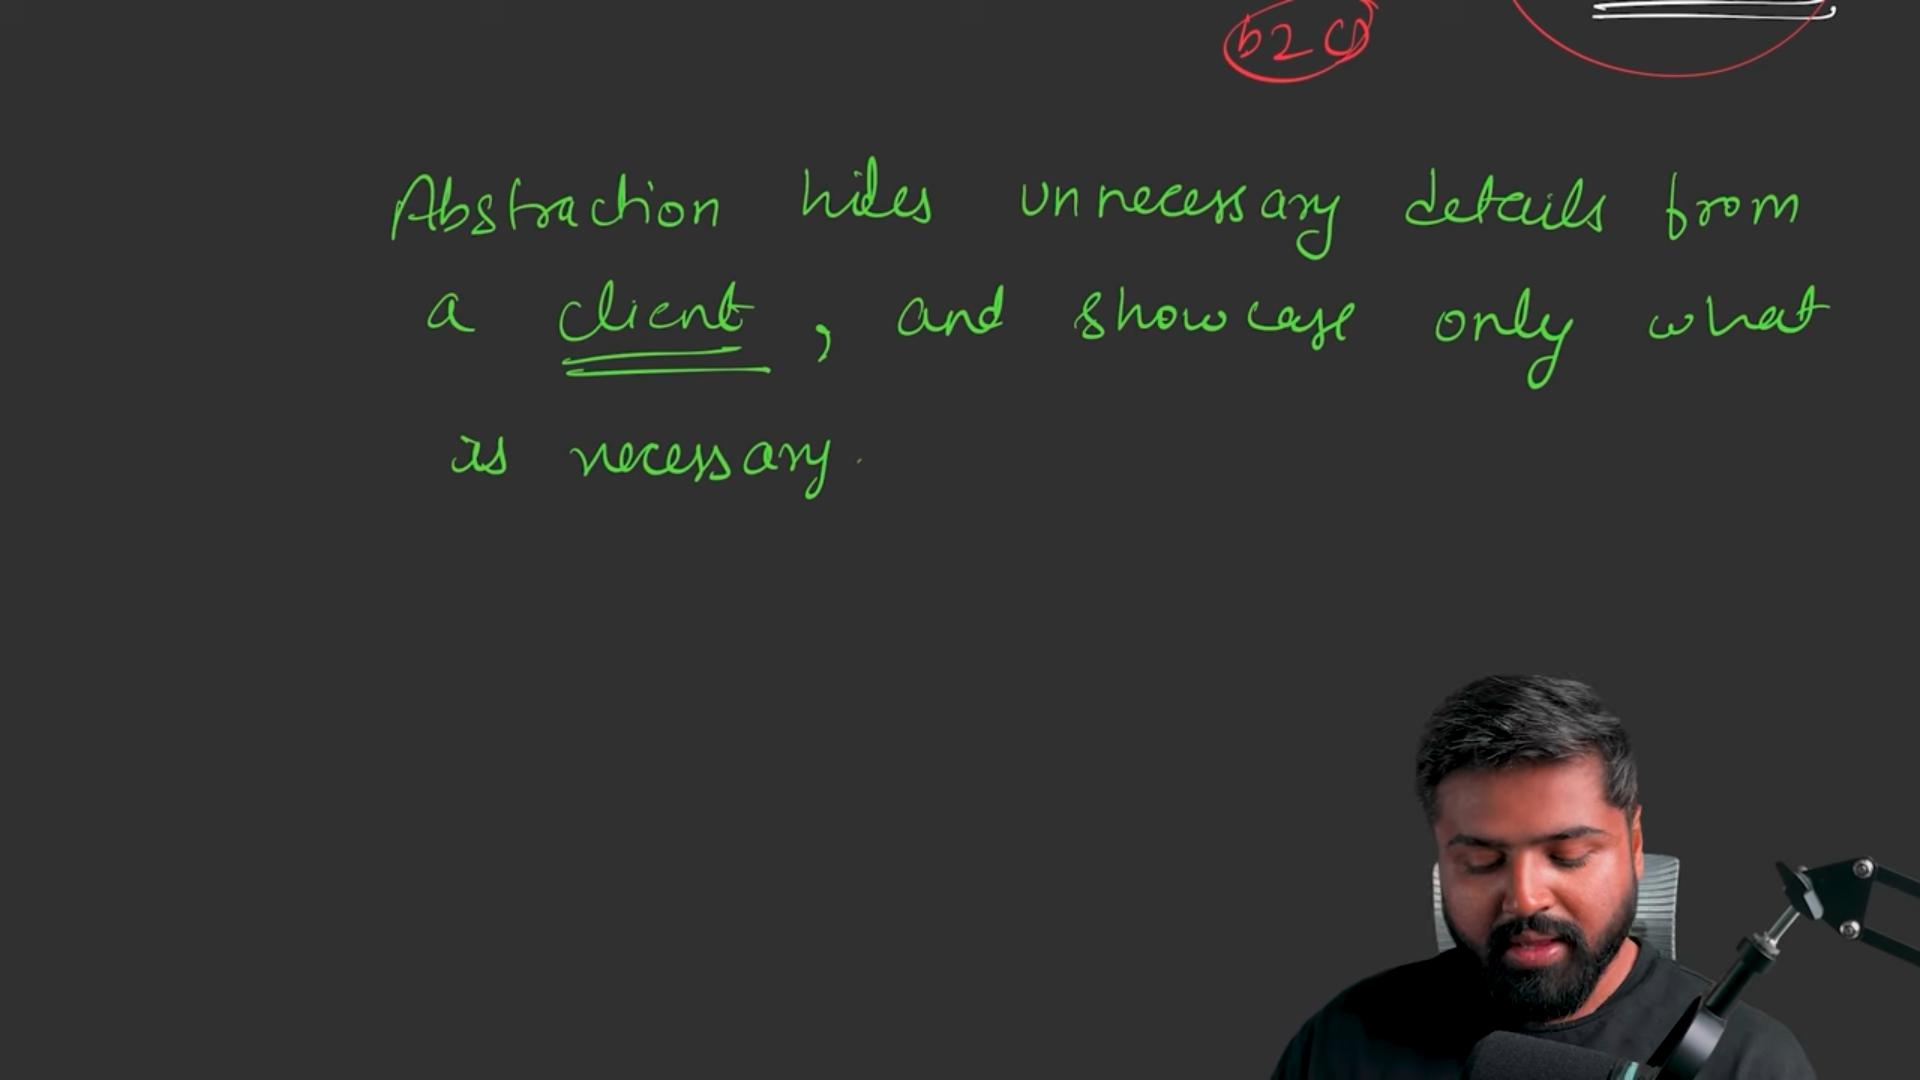 b2c
Abstraction hides unnecessary details from
a client, and showcase only what
is necessary.